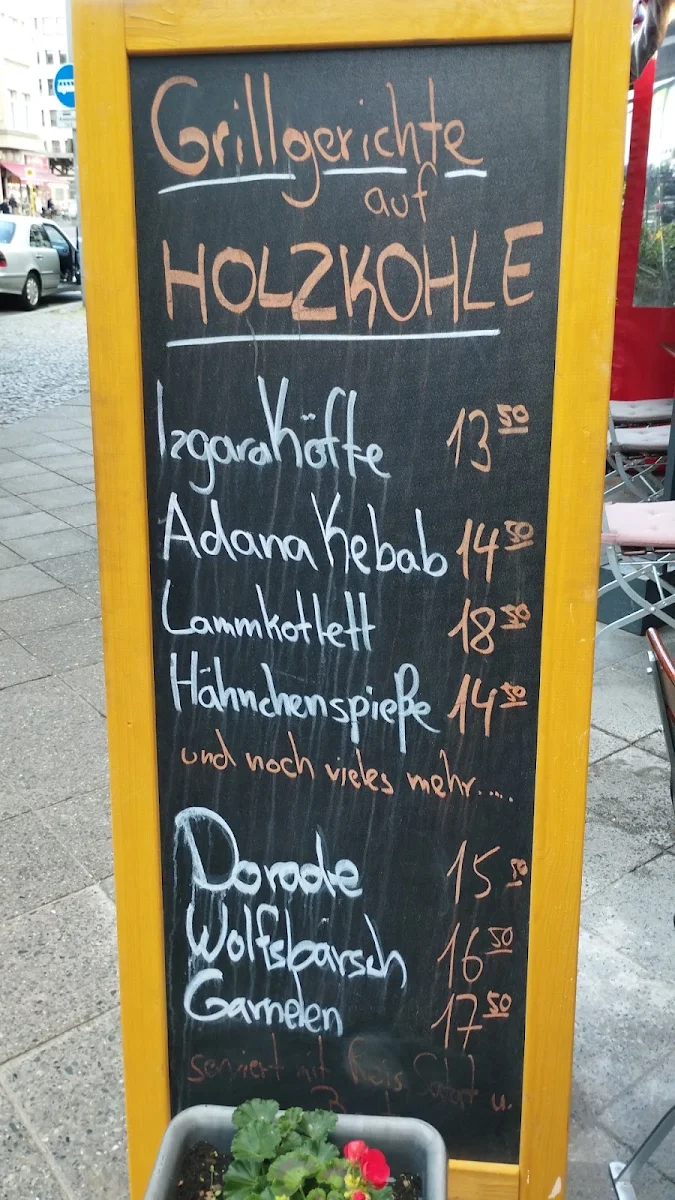 Grillgerichte
auf
HOLZKOHLE
Izgara Köfte 13 50
Adana Kebab 14 50
Lammkotlett 18 50
Hähnchenspieße 14 50
und noch vieles mehr.....
Dorade 15 50
Wolfsbarsch 16 50
Garnelen 17 50
serviert mit Reis Salat u.